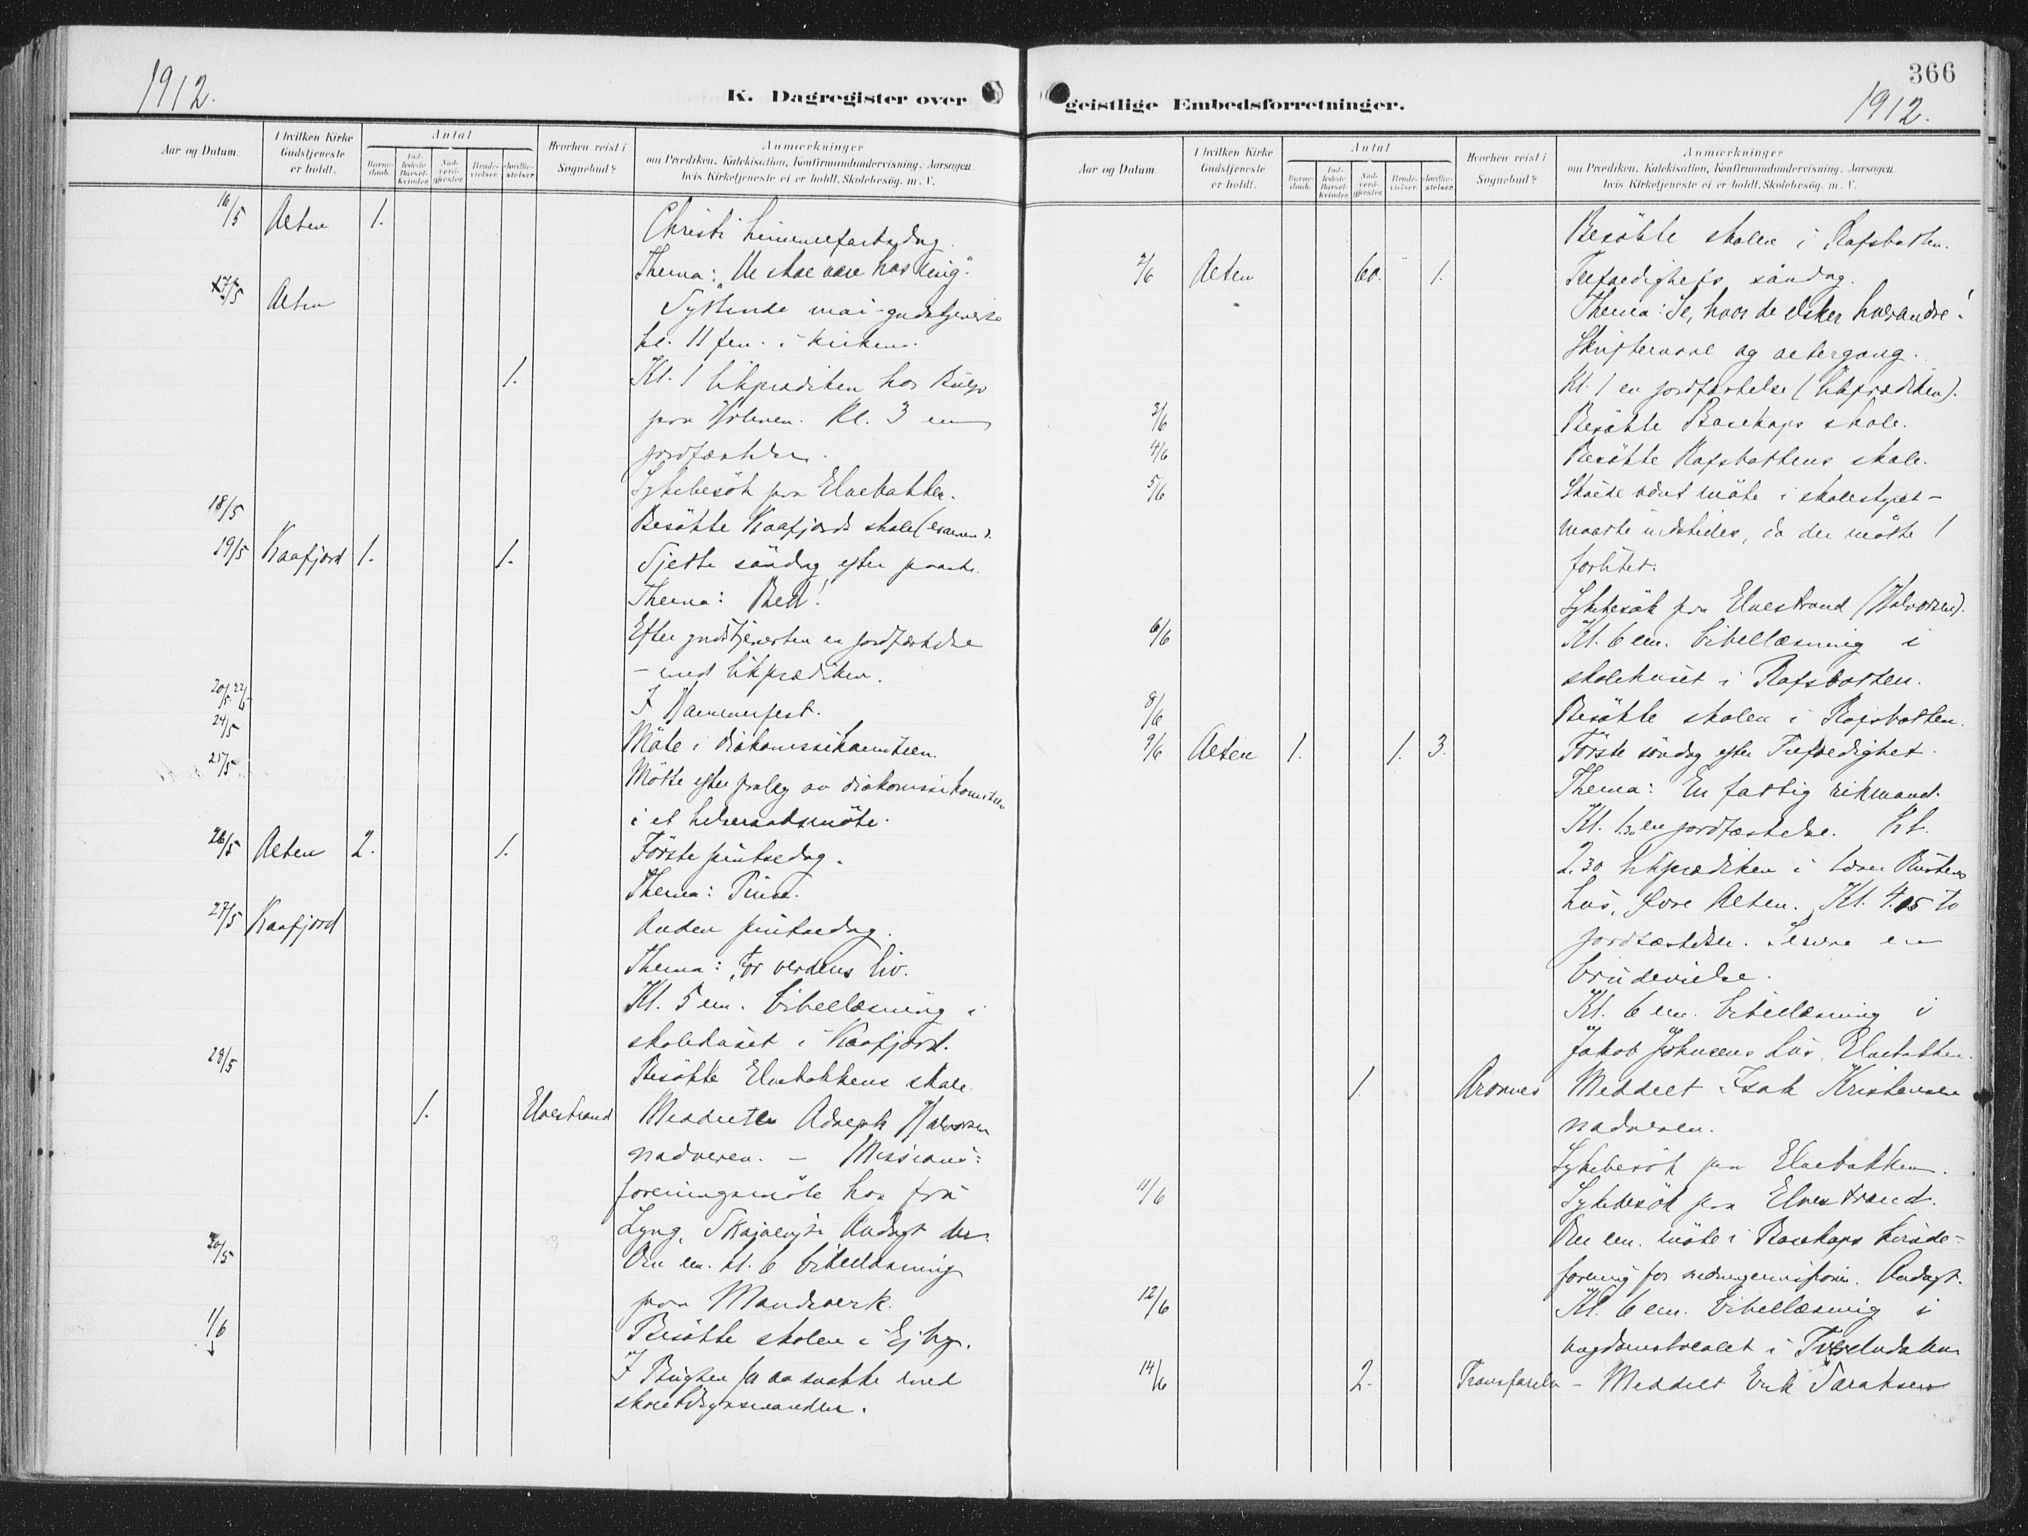 1912.
K. Dagregister over
Aar og Datum.
I hvilken Kirke Gudstjeneste er holdt.
Antal
Barnedaab.
Indledede Barselkvinder.
Nadverdgjæster.
Brudevielser.
Jordfæstelser.
Hvorhen reist i Sognebud?
Anmærkninger
om Prædiken, Katekisation, Konfirmandundervisning, Aarsagen
hvis Kirketjeneste ei er holdt, Skolebesøg, m. V.
16/5 Alten 1. Christi himmelfartsdag.
Thema: De skal være hos mig.
17/5 Alten Syttende mai-gudstjeneste
kl. 11 fm. i kirken.
1. Kl. 1 likprædiken hos
paa Kl. 3 en
jordfæstelse.
Sykebesök paa Elvebakken.
18/5 Besökte Kaafjords skole (examen).
19/5 Kaafjord 1. 1. Sjette söndag efter paaske.
Thema: Bed!
Efter gudstjenesten en jordfæstelse
- med likprædiken.
20/5 22/5 I Hammerfest.
24/5 Möte i diakonissekomiteen.
25/5 Mötte efter av diakonissekomiteen
i et helseraadsmöte.
26/5 Alten 2. 1. Förste pintsedag.
Thema: Pinse.
27/5 Kaafjord Anden pintsedag.
Thema: For verdens liv.
Kl. 5 em. bibellæsning i
skolehuset i Kaafjord.
29/5 Besökte Elvebakkens skole.
1. Elvestrand Meddelte Adolph Halvorsen
nadveren. - Missions-
foreningsmöte hos fru
Lyng, Andagt der.
30/5 Den em. kl. 6 bibellæsning
paa
1/6 Besökte skolen i
I Bugten for aa snakke med
366
1912.
geistlige Embedsforretninger.
Aar og Datum.
I hvilken Kirke Gudstjeneste er holdt.
Antal
Barnedaab.
Indledede Barselkvinder.
Nadverdgjæster.
Brudevielser.
Jordfæstelser.
Hvorhen reist i Sognebud?
Anmærkninger
om Prædiken, Katekisation, Konfirmandundervisning, Aarsagen
hvis Kirketjeneste ei er holdt, Skolebesøg, m. V.
Besökte skolen i Rafsbotten.
2/6 Alten 60. 1. Trefoldighets söndag.
Thema: Se, hvor de elsker hverandre!
Skriftemaal og altergang.
Kl. 1 en jordfæstelse (likprædiken).
3/6 Besökte Bosekops skole.
4/6 Besökte Rafsbottens skole.
5/6 Skulde været möte i skolestyret -
maatte utsættes, da der mötte 1
forlitet.
Sykebesök paa Elvestrand (Halvorsen).
6/6 Kl. 6 em. bibellæsning i
skolehuset i Rafsbotten.
8/6 Besökte skolen i Rafsbotten.
9/6 Alten 1. 1. 3. Förste söndag efter Trefoldighet.
Thema: En fattig rikmand.
Kl. 1 en jordfæstelse. Kl.
2.30 likprædiken i
hus, Övre Alten. Kl. 4.15 to
jordfæstelser. Senere en
brudevielse.
Kl. 6 em. bibellæsning i
Jakob Johnsens hus, Elvebakken.
1. Aronnes Meddelt Isak Kristensen
nadveren.
Sykebesök paa Elvebakken.
11/6 Sykebesök paa Elvestrand.
Den em. möte i Bosekops kvinde-
forening for Andagt.
12/6 Kl. 6 em. bibellæsning i
ungdomslokalet i Tverelvdalen
14/6 2. Transfarelv - Meddelt Erik